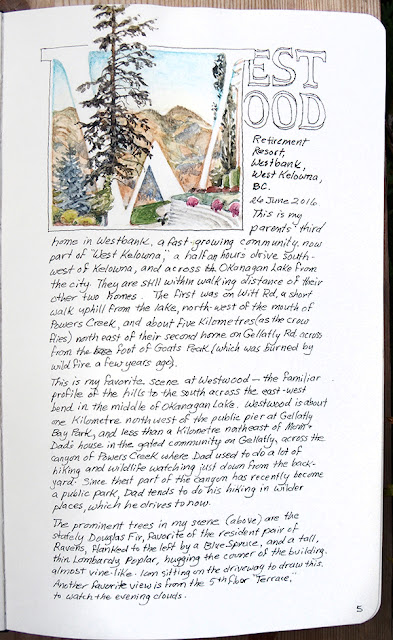 WEST
WOOD
Retirement
Resort,
Westbank,
West Kelowna,
BC.
26 June 2016.
This is my
parents' third
home in Westbank, a fast-growing community, now
part of "West Kelowna," a half an hours drive south-
west of Kelowna, and across Okanagan Lake from
the city. They are still within walking distance of their
other two homes. The first was on Witt Rd, a short
walk uphill from the lake, north-west of the mouth of
Powers Creek, and about five Kilometres (as the crow
flies) north east of their second home on Gellatly Rd. across
from the foot of Goats Peak (which was burned by
wild fire a few years ago).
This is my favorite scene at Westwood — the familiar
profile of the hills to the south across the east-west
bend in the middle of Okanagan Lake. Westwood is about
one Kilometre northwest of the public pier at Gellatly
Bay Park, and less than a Kilometre northeast of Mom &
Dad's house in the gated community on Gellatly, across the
canyon of Powers Creek where Dad used to do a lot of
hiking and wildlife watching just down from the back-
yard. Since that part of the canyon has recently become
a public park, Dad tends to do his hiking in wilder
places, which he drives to now.
The prominent trees in my scene (above) are the
stately Douglas Fir, favorite of the resident pair of
Ravens, flanked to the left by a Blue Spruce, and a tall,
thin Lombardy Poplar, hugging the corner of the building,
almost vine-like. I am sitting on the driveway to draw this.
Another favorite view is from the 5th floor "Terrace,"
to watch the evening clouds.
5